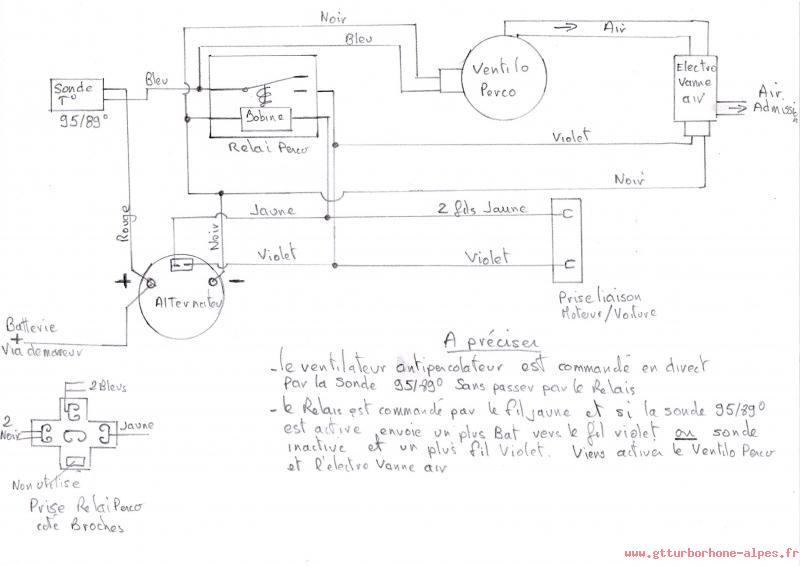 Noir
Bleu
Air
Ventilo
Perco
Electro
Vanne
air
Air
Admissi
Sonde
T°
95/89°
Bleu
Bobine
Relai Perco
Violet
Noir
Rouge
Jaune
Noir
2 fils Jaune
Violet
Violet
+
-
Alternateu
Prise liaison
Moteur/Voiture
Batterie
+
Via demarreur
A préciser
- le ventilateur antipercolateur est commandé en direct
Par la Sonde 95/89° Sans passer par le Relais
- le Relais est commandé par le fil jaune et si la sonde 95/89°
est active envoie un plus Bat vers le fil violet ou sonde
inactive et un plus fil Violet. Viens activer le Ventilo Perco
et l'electro Vanne air
2 Bleus
2
Noir
Jaune
Non utilisé
Prise Relai Perco
coté Broches
www.gtturborhone-alpes.fr